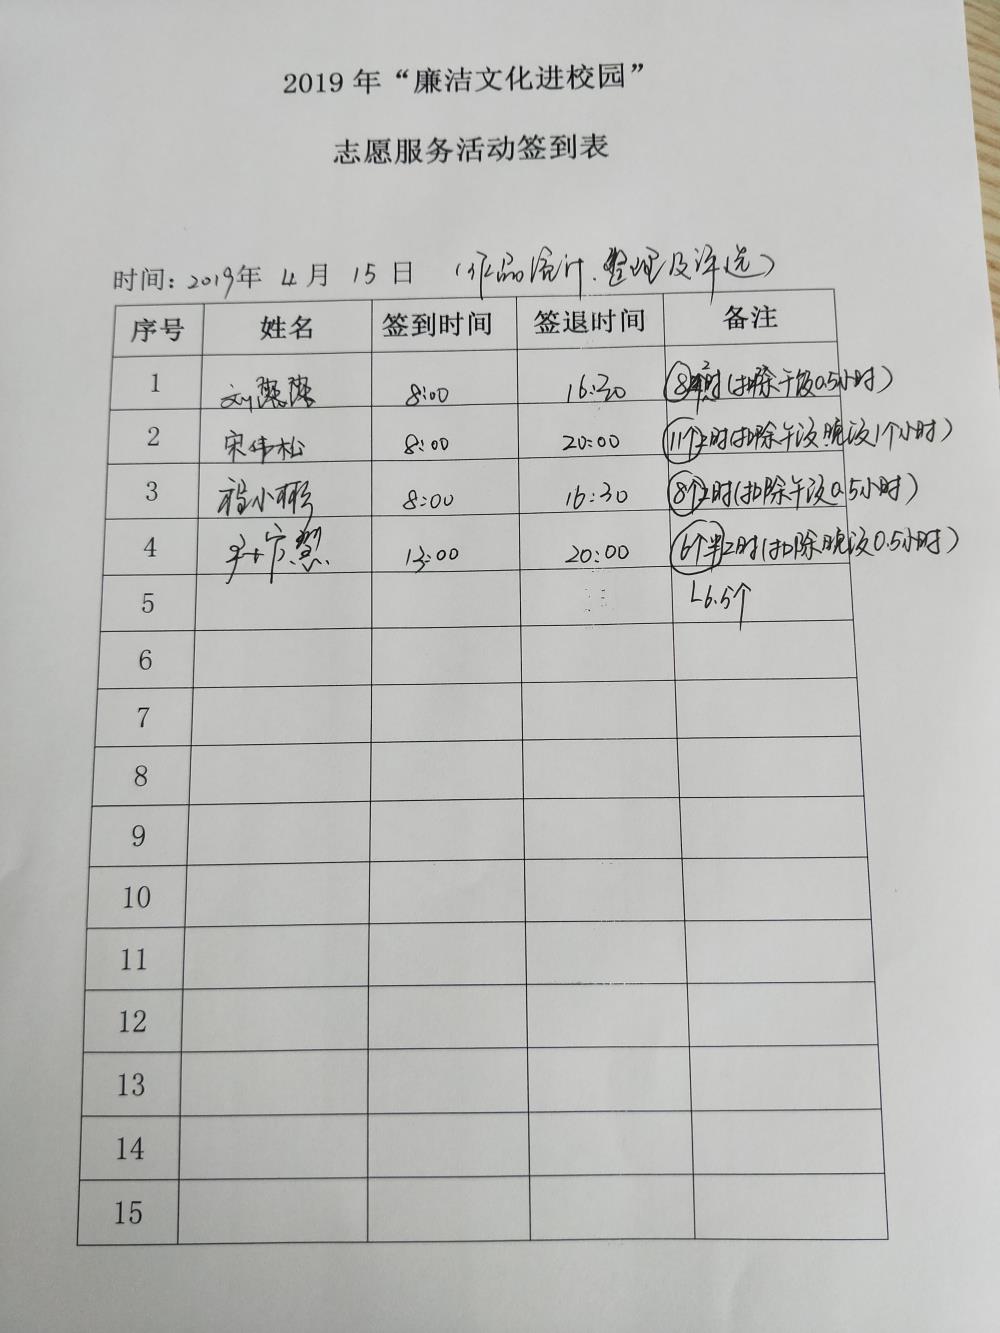 2019年“廉洁文化进校园”
志愿服务活动签到表
时间：2019年 4月 15日 （作品统计、整理及评选）
序号 姓名 签到时间 签退时间 备注
1 刘 8:00 16:30 8 时（扣除午饭0.5小时）
2 宋伟松 8:00 20:00 11个小时（扣除午饭晚饭1个小时）
3 程小彬 8:00 16:30 8个小时（扣除午饭0.5小时）
4 13:00 20:00 6个半小时（扣除晚饭0.5小时）
5 6.5个
6
7
8
9
10
11
12
13
14
15